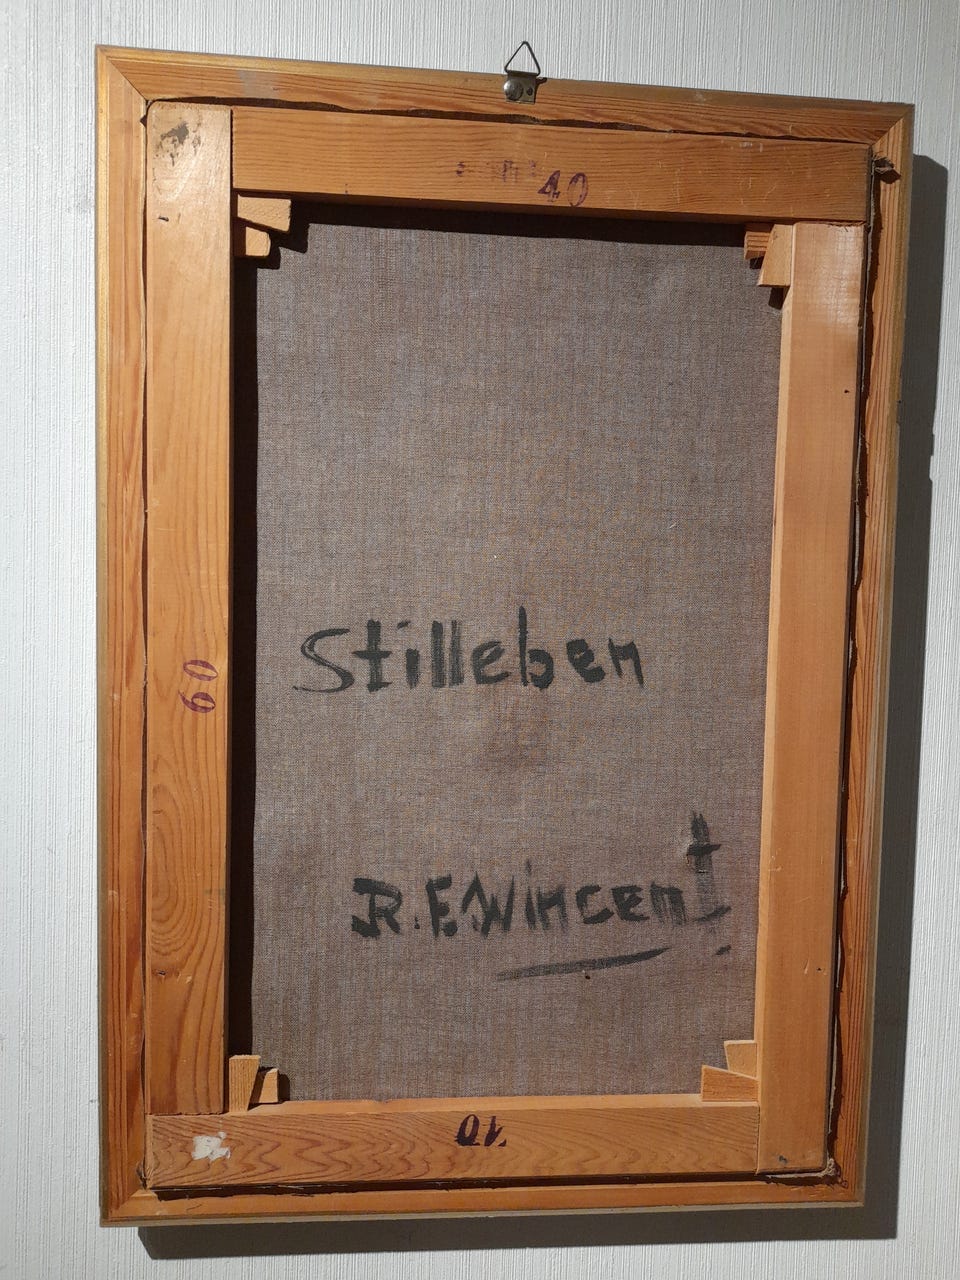 40
60
Stilleben
R.E.Wincent
40